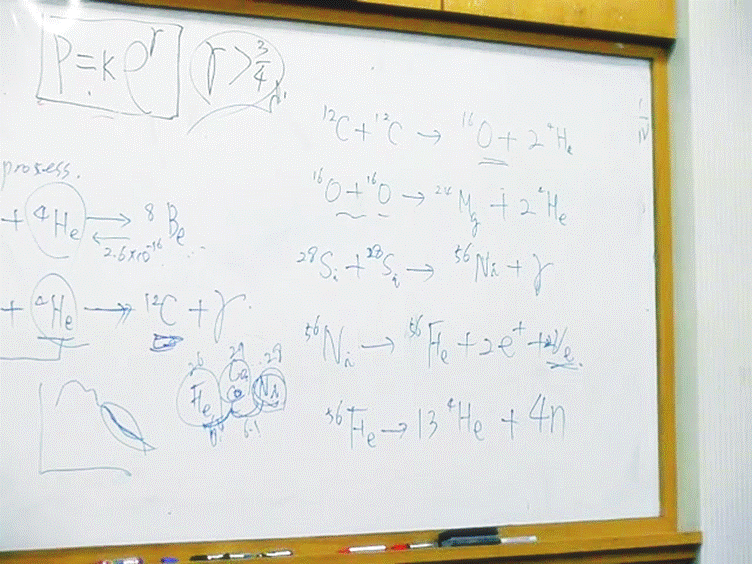 P = K ρ^γ
γ > 3/4
process.
+ ⁴He → ⁸Be
← 2.6×10⁻¹⁶
+ ⁴He → ¹²C + γ
26 29 28
Fe Co Ni
6.1
¹²C + ¹²C → ¹⁶O + 2⁴He
¹⁶O + ¹⁶O → ²⁴Mg + 2⁴He
²⁸Si + ²⁸Si → ⁵⁶Ni + γ
⁵⁶Ni → ⁵⁶Fe + 2e⁺ + 2νe
⁵⁶Fe → 13⁴He + 4n